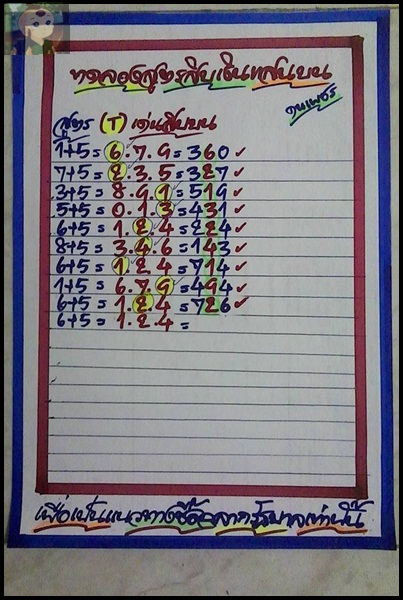 ทดลองสูตรสิบเงินแสนบน
สูตร (T) เด่นสิบบน
1+5=6.7.9=360✓
7+5=2.3.5=327✓
3+5=8.9.1=519✓
5+5=0.1.3=431✓
6+5=1.2.4=224✓
8+5=3.4.6=143✓
6+5=1.2.4=714✓
1+5=6.7.9=494✓
6+5=1.2.4=726✓
6+5=1.2.4=
เพื่อเป็นแนวทางซื้อสลากรัฐบาลเท่านั้น